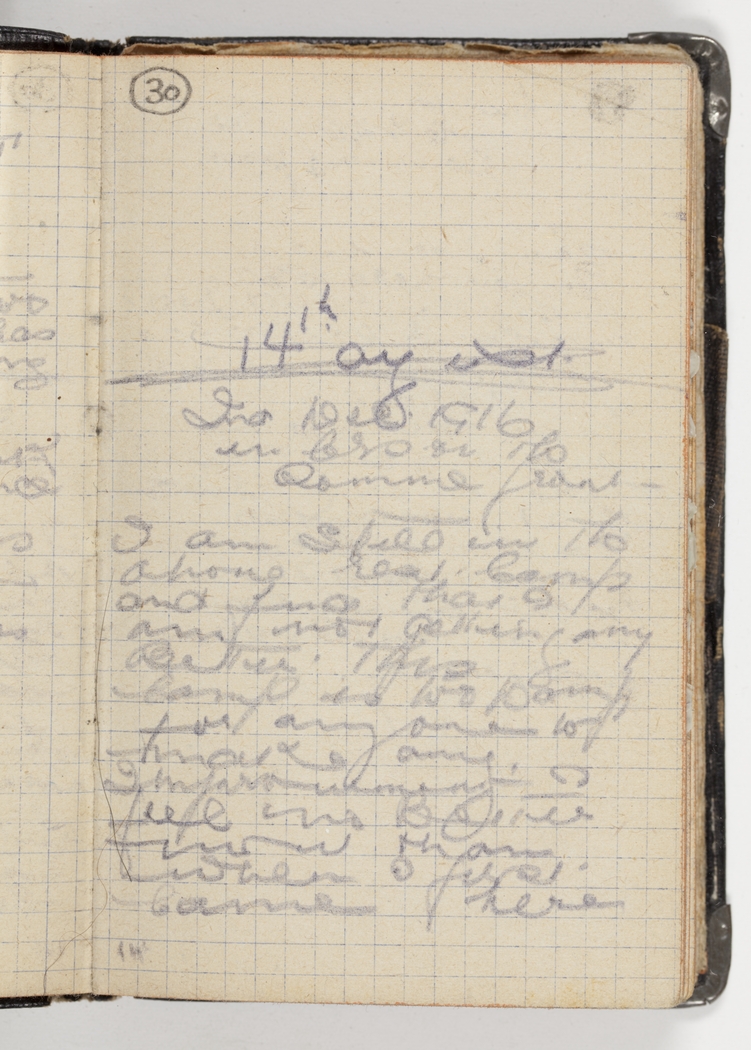 30
14th Day
Dec 1916
in
Somme front
I am still in the
above Rest Camp
and find that I
am not getting any
Better. This
Camp is too Damp
for any one to
make any
Improvement I
feel no Better
now than
when I first
came here